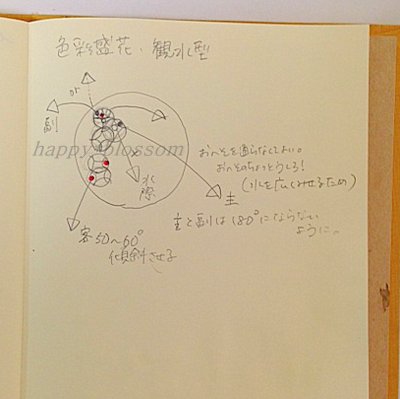 色彩盛花、観水型
or
副
happy*blossom
水際
おへそを通らなくてよい。
おへそのちょっとうしろ!
(水を広くみせるため)
主
主と副は180°にならない
ように。
客50~60°
傾斜させる